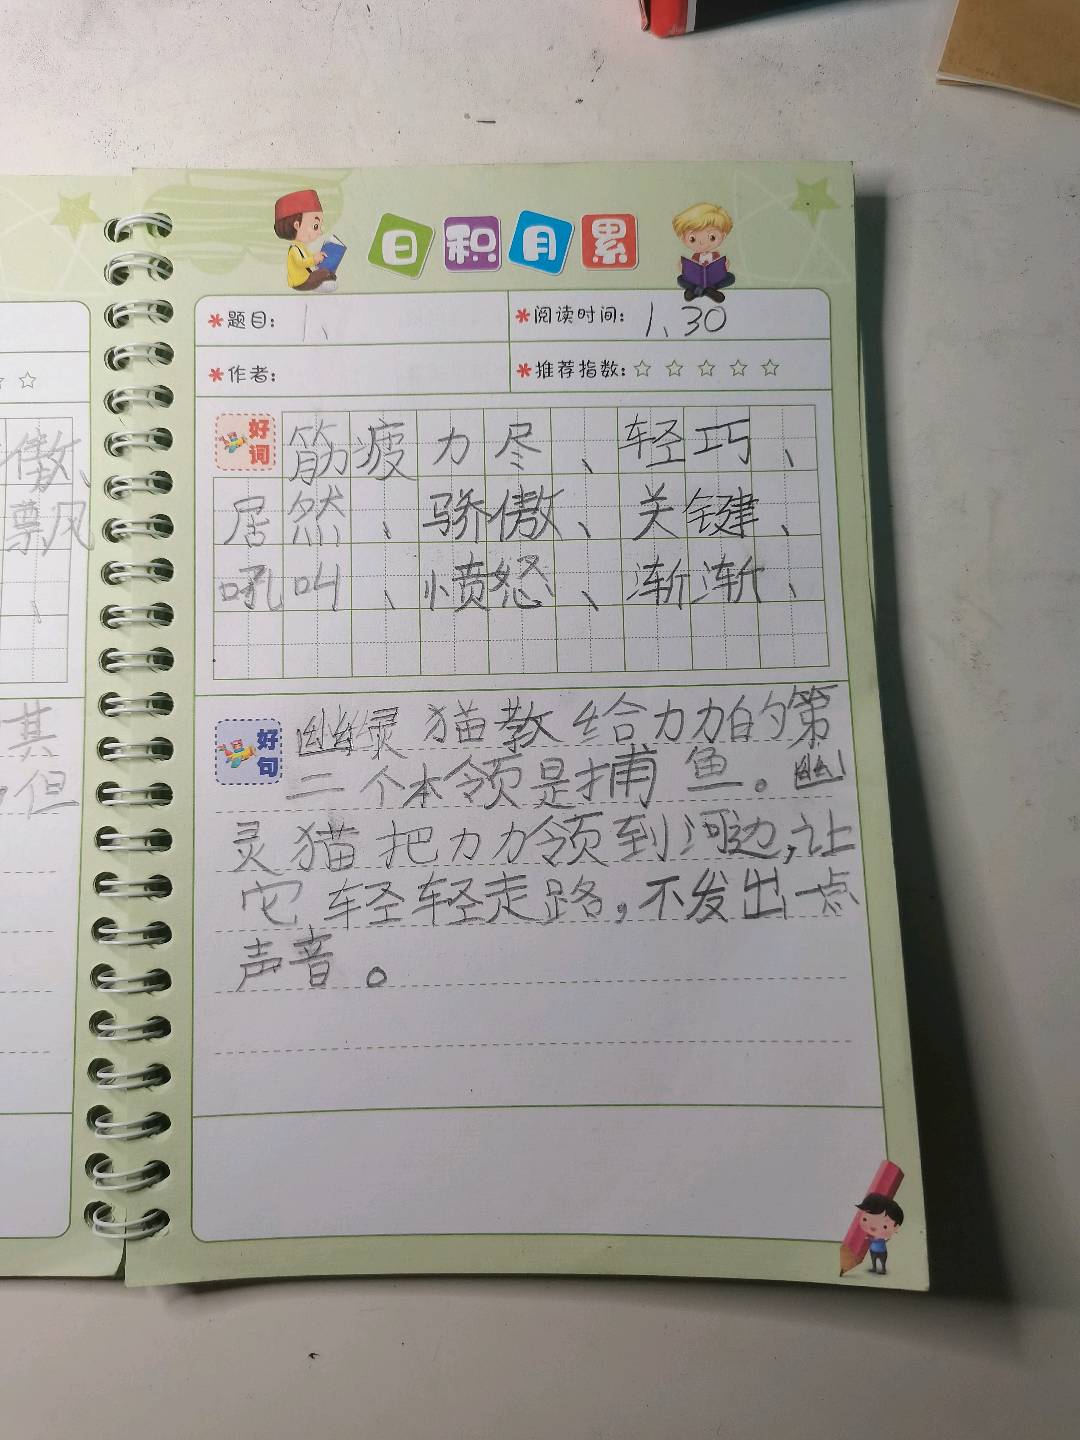 日积月累
*题目: 1、
*阅读时间: 1、30
*作者:
*推荐指数:☆☆☆☆☆
好词
筋疲力尽、轻巧、
居然、骄傲、关键、
吼叫、愤怒、渐渐、
好句
幽灵猫教给力力的第
二个本领是捕鱼。幽
灵猫把力力领到河边,让
它轻轻走路,不发出一点
声音。
傲、
飘风
、
其
但